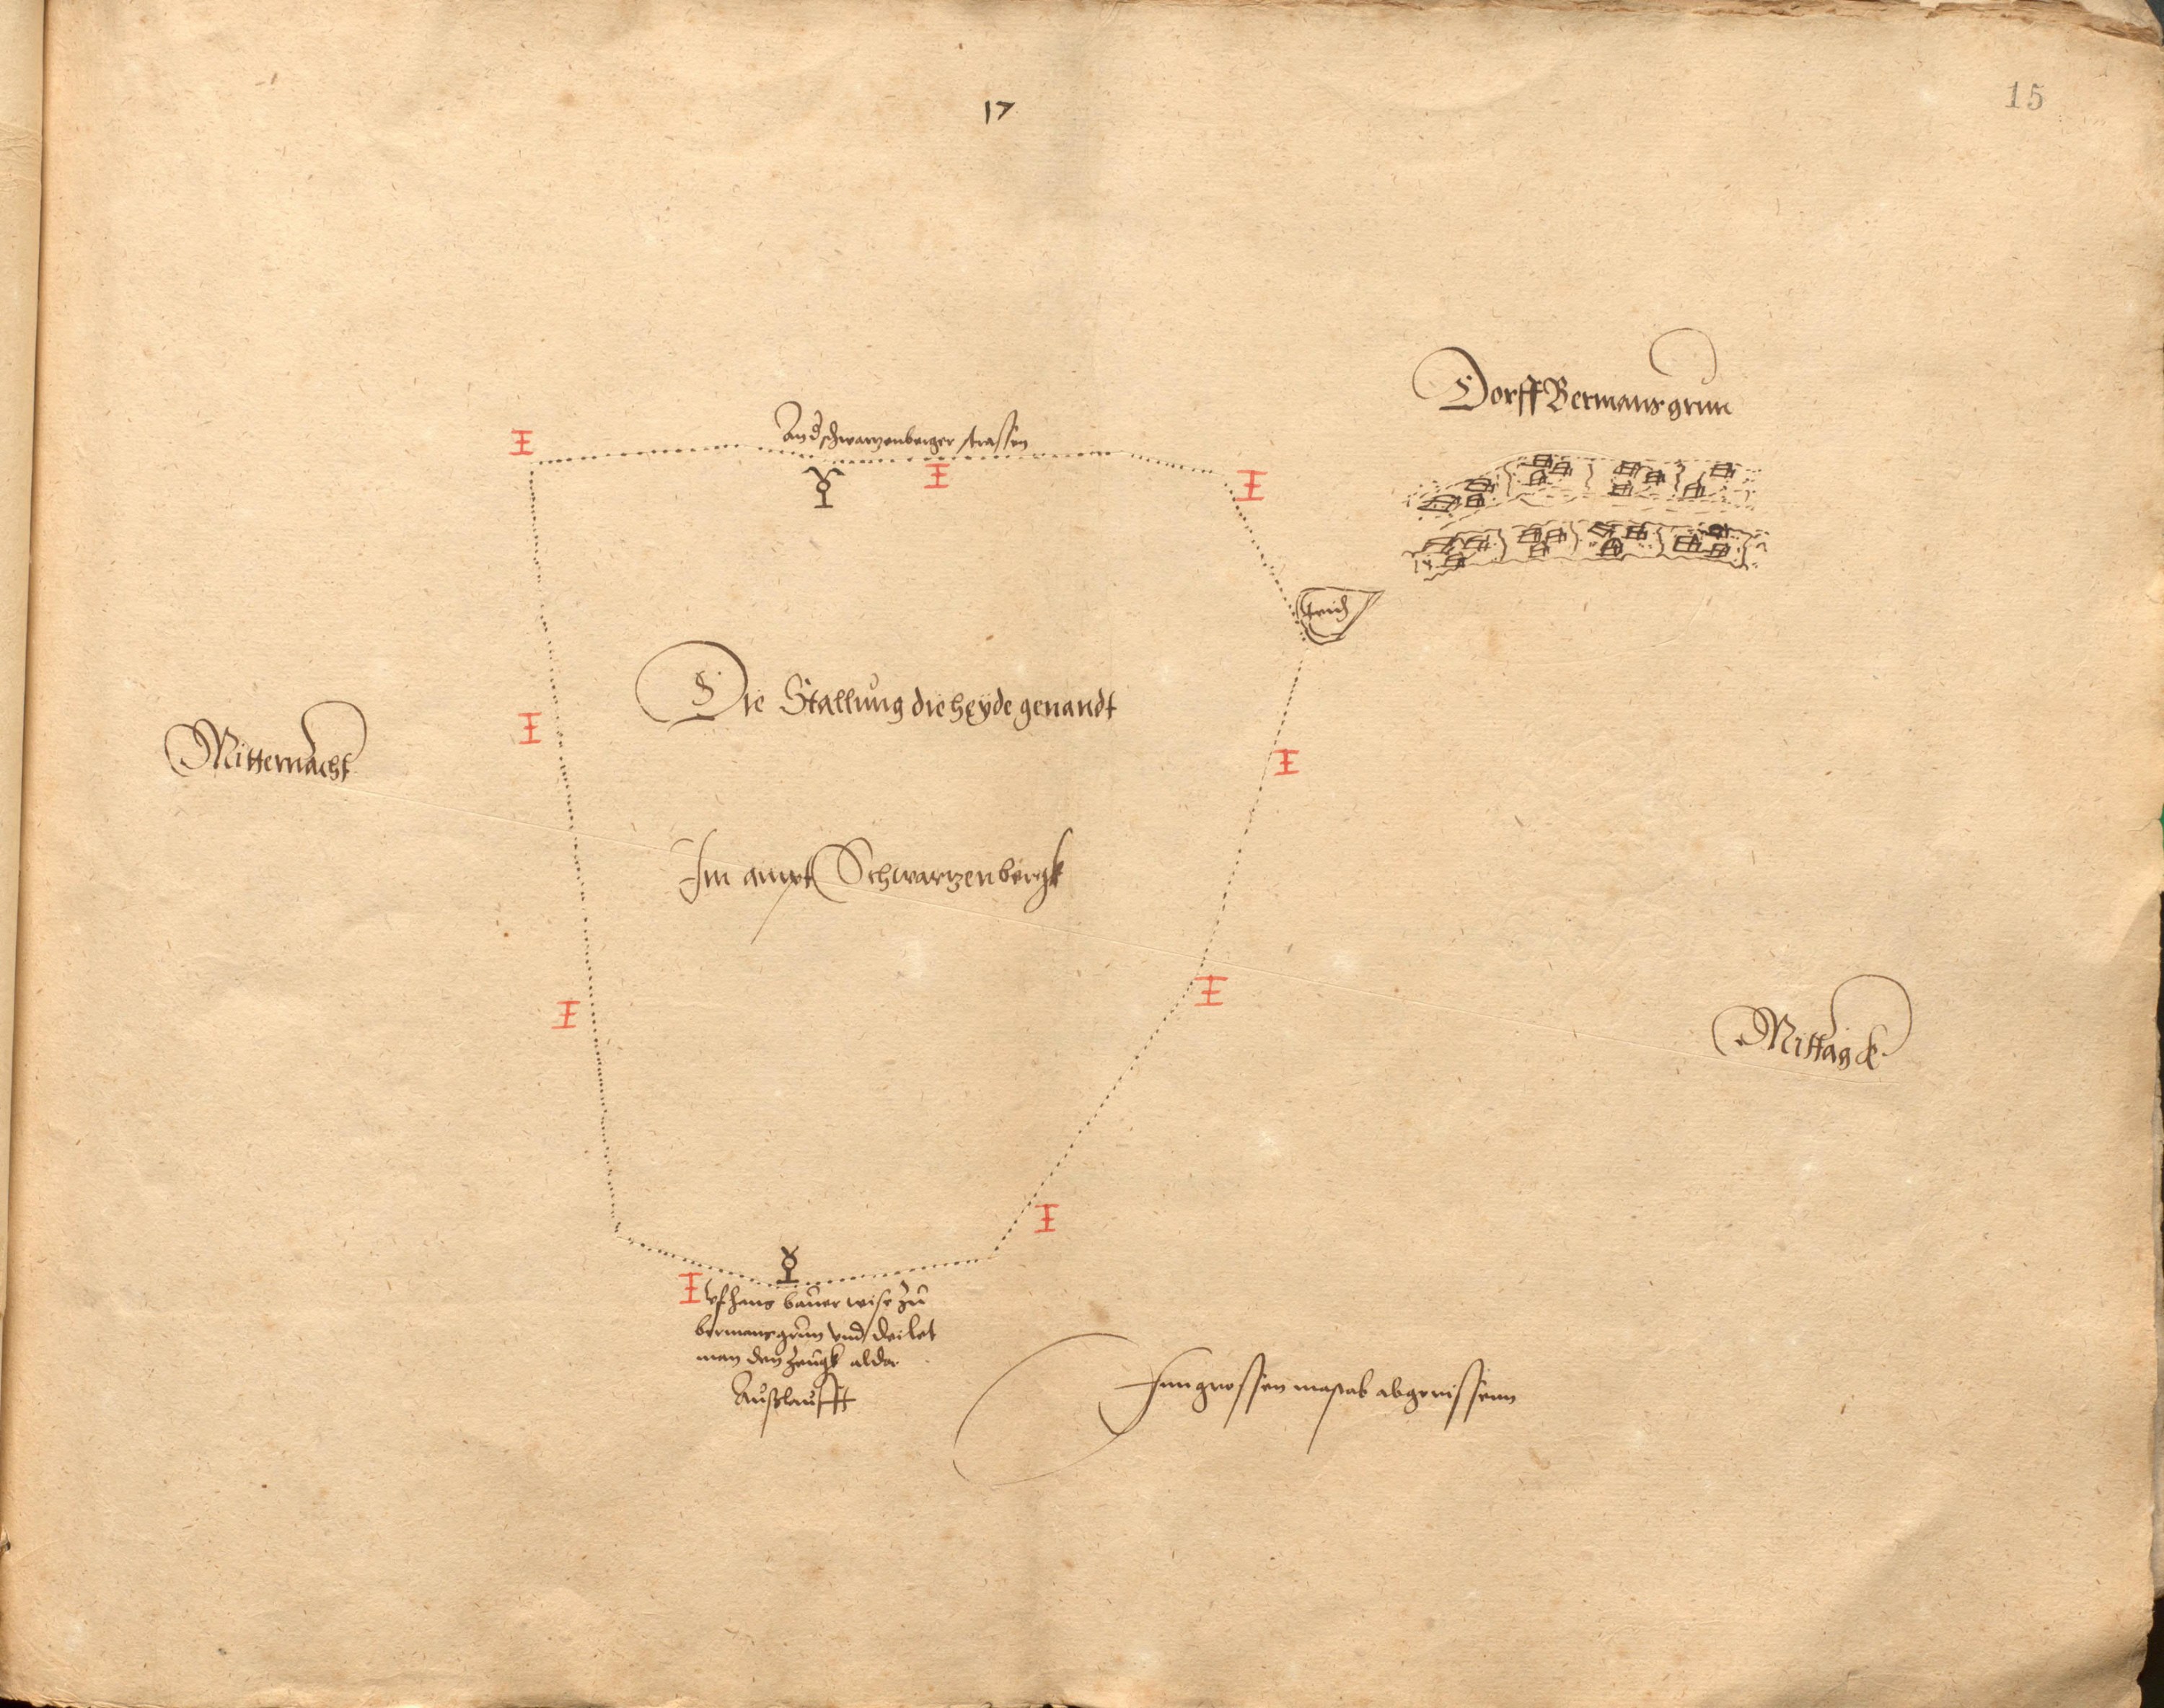 17
15
Dorff Bermansgrun
An d schwarzenberger strassen
teich
Die Stallung die heyde genandt
Mitternacht
Im ampt Schwarzenbergk
Mittagk
Vf hans bauer wise zu
bermansgrun vnd deilet
man den zeugk alda
Außlaufft
Inn grossen mastab abgerissenn